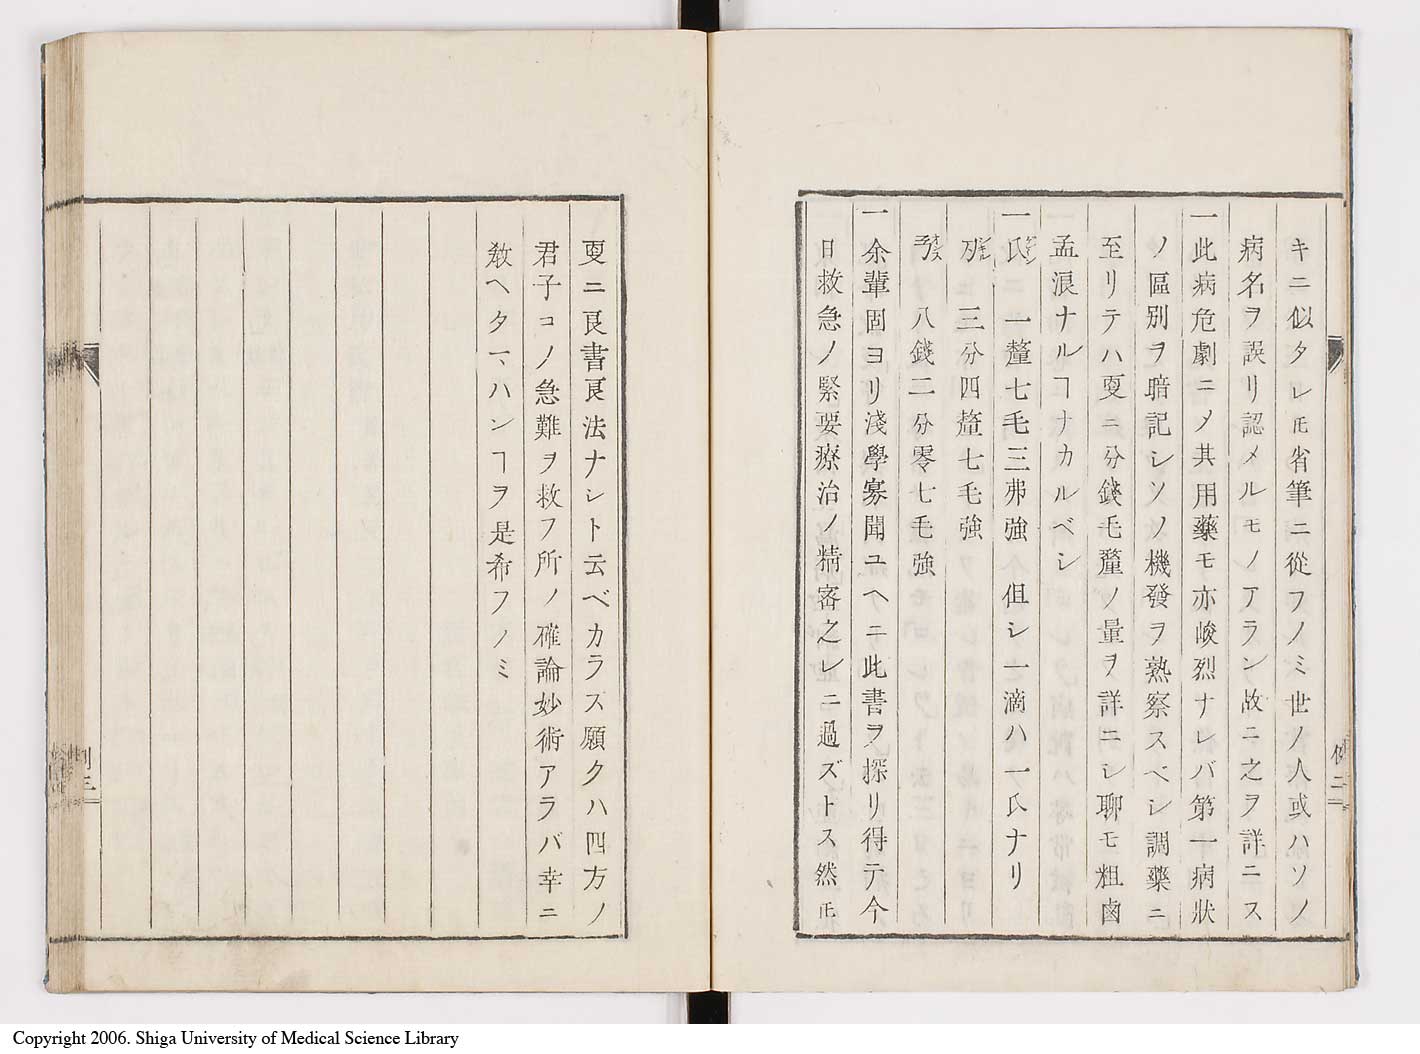 キニ似タレ𪜈省筆ニ從フノミ世ノ人或ハソノ
病名ヲ誤リ認メルモノアラン故ニ之ヲ詳ニス
一此病危劇ニ〆其用藥モ亦峻烈ナレバ第一病狀
ノ區別ヲ暗記シソノ機發ヲ熟察スベシ調藥ニ
至リテハ更ニ分錢毛釐ノ量ヲ詳ニシ聊モ粗鹵
孟浪ナルヿナカルベシ
一氏 一釐七毛三弗強 但シ一滴ハ一氏ナリ
三分四釐七毛強
八錢二分零七毛強
一余輩固ヨリ淺學寡聞ユヘニ此書ヲ探リ得テ今
日救急ノ緊要療治ノ精審之レニ過ズトス然𪜈
更ニ良書良法ナシト云ベカラス願クハ四方ノ
君子コノ急難ヲ救フ所ノ確論妙術アラバ幸ニ
敎ヘタマハンヿヲ是希フノミ
例二
例三
Copyright 2006. Shiga University of Medical Science Library